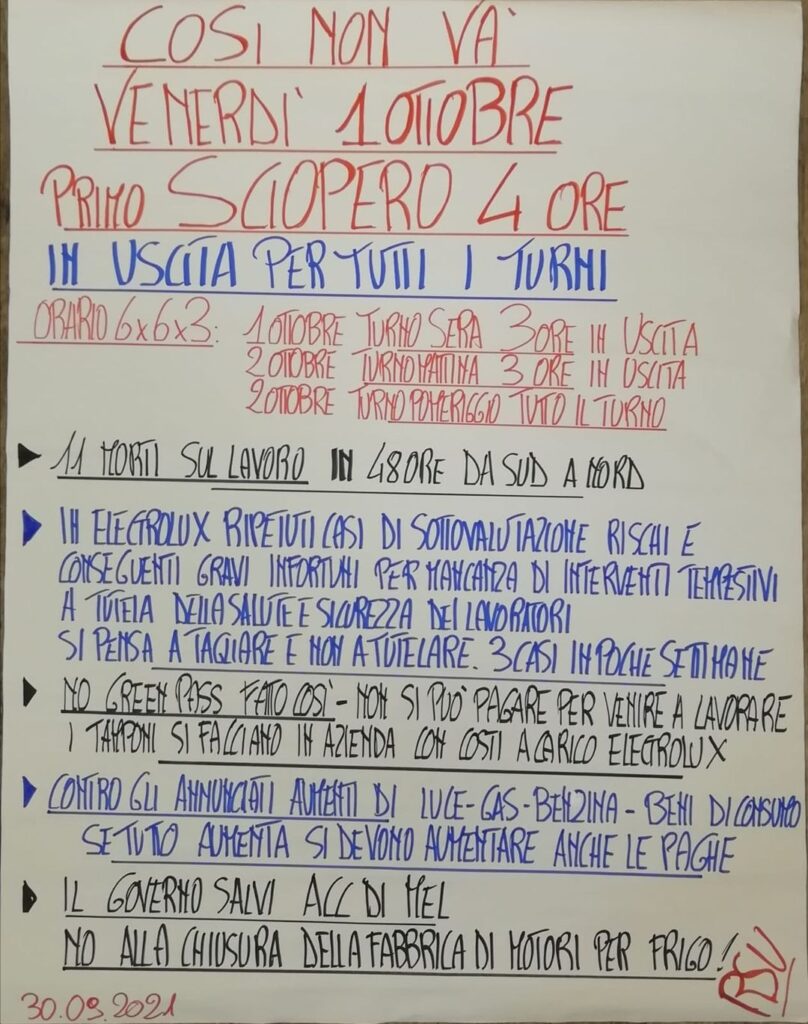 COSI NON VA'
VENERDI' 1 OTTOBRE
PRIMO SCIOPERO 4 ORE
IN USCITA PER TUTTI I TURNI
ORARIO 6x6x3: 1 OTTOBRE TURNO SERA 3 ORE IN USCITA
2 OTTOBRE TURNO MATTINA 3 ORE IN USCITA
2 OTTOBRE TURNO POMERIGGIO TUTTO IL TURNO
► 11 MORTI SUL LAVORO IN 48 ORE DA SUD A NORD
► IN ELECTROLUX RIPETUTI CASI DI SOTTOVALUTAZIONE RISCHI E
CONSEGUENTI GRAVI INFORTUNI PER MANCANZA DI INTERVENTI TEMPESTIVI
A TUTELA DELLA SALUTE E SICUREZZA DEI LAVORATORI
SI PENSA A TAGLIARE E NON A TUTELARE. 3 CASI IN POCHE SETTIMANE
► NO GREEN PASS FATTO COSI' - NON SI PUO' PAGARE PER VENIRE A LAVORARE
I TAMPONI SI FACCIANO IN AZIENDA CON COSTI A CARICO ELECTROLUX
► CONTRO GLI ANNUNCIATI AUMENTI DI LUCE-GAS-BENZINA-BENI DI CONSUMO
SE TUTTO AUMENTA SI DEVONO AUMENTARE ANCHE LE PAGHE
► IL GOVERNO SALVI ACC DI MEL
NO ALLA CHIUSURA DELLA FABBRICA DI MOTORI PER FRIGO!
RSU
30.09.2021